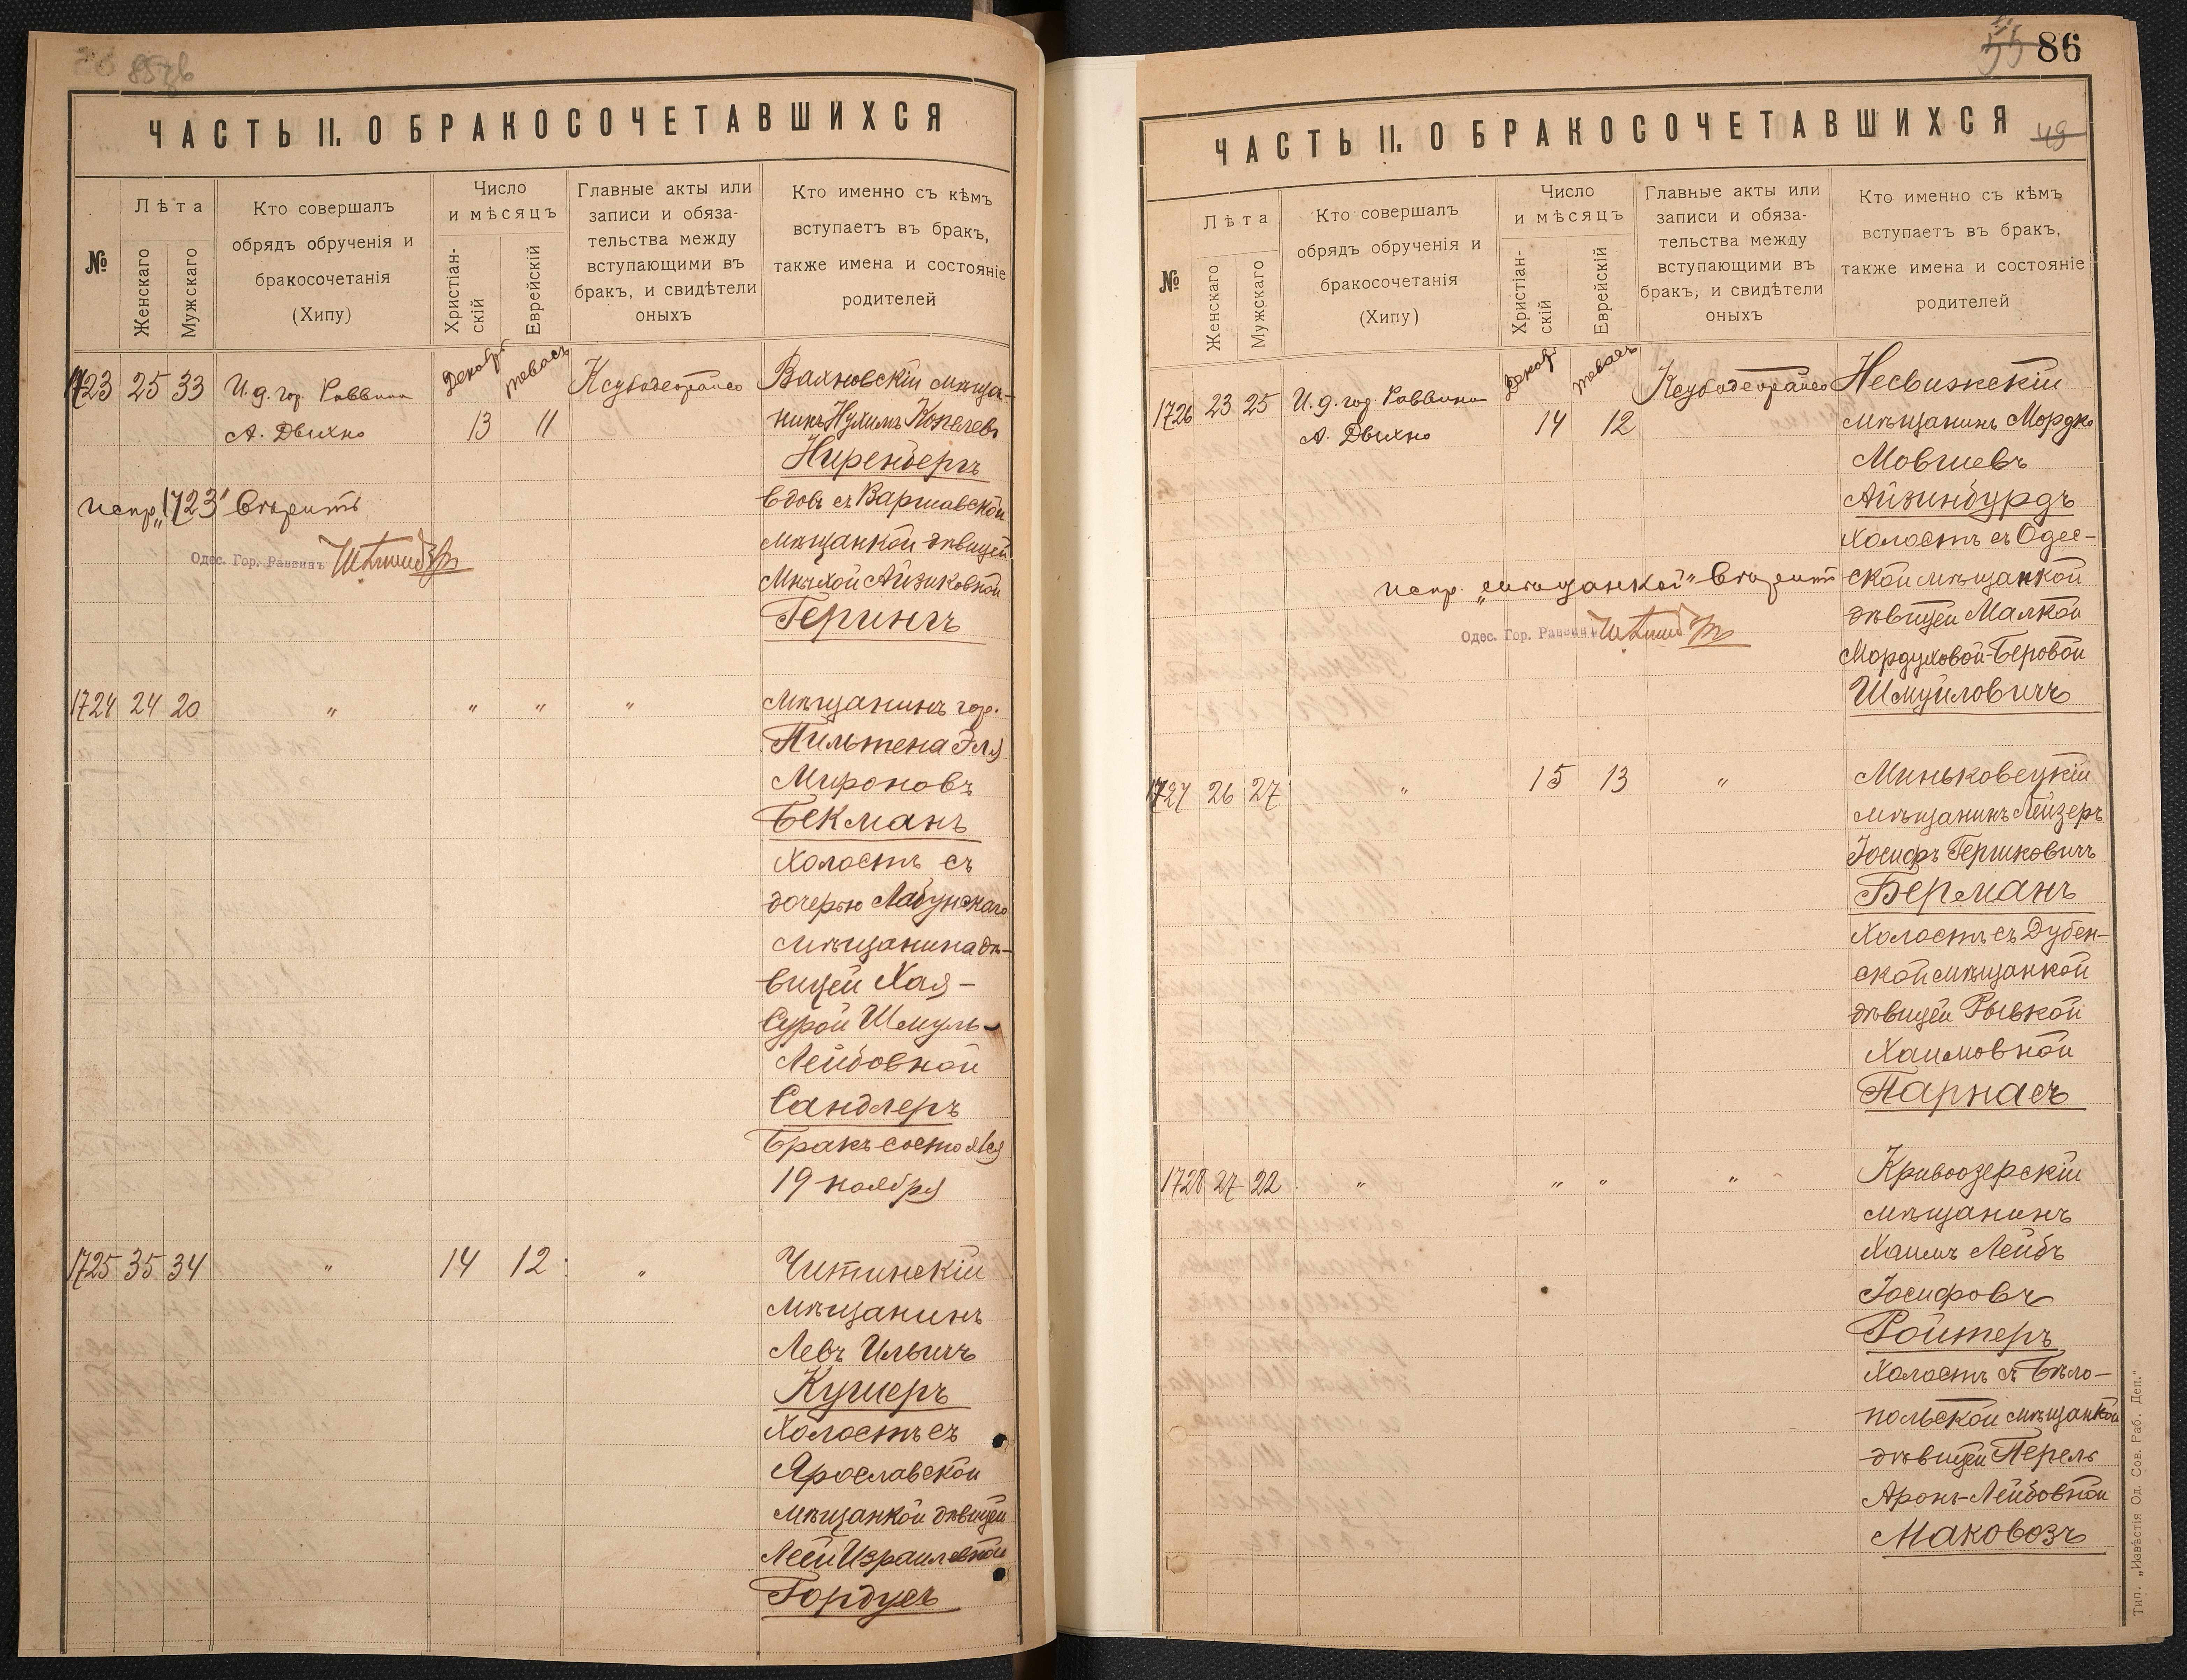 85зв
ЧАСТЬ II. О БРАКОСОЧЕТАВШИХСЯ
№
Лѣта
Женскаго
Мужскаго
Кто совершалъ
обрядъ обрученія и
бракосочетанія
(Хипу)
Число
и мѣсяцъ
Христіан-
скій
Еврейскій
Главные акты или
записи и обяза-
тельства между
вступающими въ
бракъ, и свидѣтели
оныхъ
Кто именно съ кѣмъ
вступаетъ въ бракъ,
также имена и состояніе
родителей
1723 25 33 И. д. гор. Раввина
А. Двихно
Декабр
13
тевесъ
11
Вахновскій мѣща-
нинъ Нухимъ Копелевъ
Ниренбергъ
вдовъ съ Варшавской
мѣщанкой дѣвицей
Мнихой Айзиковной
Герингъ
испр. „1723" вѣрить
Одес. Гор. Раввинъ
1724 24 20 " " " "
Мѣщанинъ гор.
Пильтена Эля
Мироновъ
Бекманъ
холостъ съ
дочерью Лабунскаго
мѣщанина дѣ-
вицей Хая-
Сурой Шмуль-
Лейбовной
Сандлеръ
Бракъ состоялся
19 ноября
1725 35 34 " 14 12 "
Читинскій
мѣщанинъ
Левъ Ильичъ
Кушеръ
холостъ съ
Ярославской
мѣщанкой дѣвицей
Леей Израилевной
Гордусъ
86
49
ЧАСТЬ II. О БРАКОСОЧЕТАВШИХСЯ
№
Лѣта
Женскаго
Мужскаго
Кто совершалъ
обрядъ обрученія и
бракосочетанія
(Хипу)
Число
и мѣсяцъ
Христіан-
скій
Еврейскій
Главные акты или
записи и обяза-
тельства между
вступающими въ
бракъ, и свидѣтели
оныхъ
Кто именно съ кѣмъ
вступаетъ въ бракъ,
также имена и состояніе
родителей
1726 23 25 И. д. гор. Раввина
А. Двихно
Декабр
14
тевесъ
12
Несвижскій
мѣщанинъ Мордко
Мовшевъ
Айзинбурдъ
холостъ съ Одес-
ской мѣщанкой
дѣвицей Малкой
Мордуховой-Беровой
Шмуйловичъ
испр. „мѣщанкой" вѣрить
Одес. Гор. Раввинъ
1727 26 27 " 15 13 "
Миньковецкій
мѣщанинъ Лейзеръ
Іосифъ Гершковичъ
Берманъ
холостъ съ Дубен-
ской мѣщанкой
дѣвицей Рывкой
Хаимовной
Парнасъ
1728 27 22 " " " "
Кривоозерскій
мѣщанинъ
Хаимъ Лейбъ
Іосифовъ
Ройтеръ
холостъ съ Бѣло-
польской мѣщанкой
дѣвицей Перель
Аронъ-Лейбовной
Маковозъ
Тип. „Извѣстія Од. Сов. Раб. Деп."